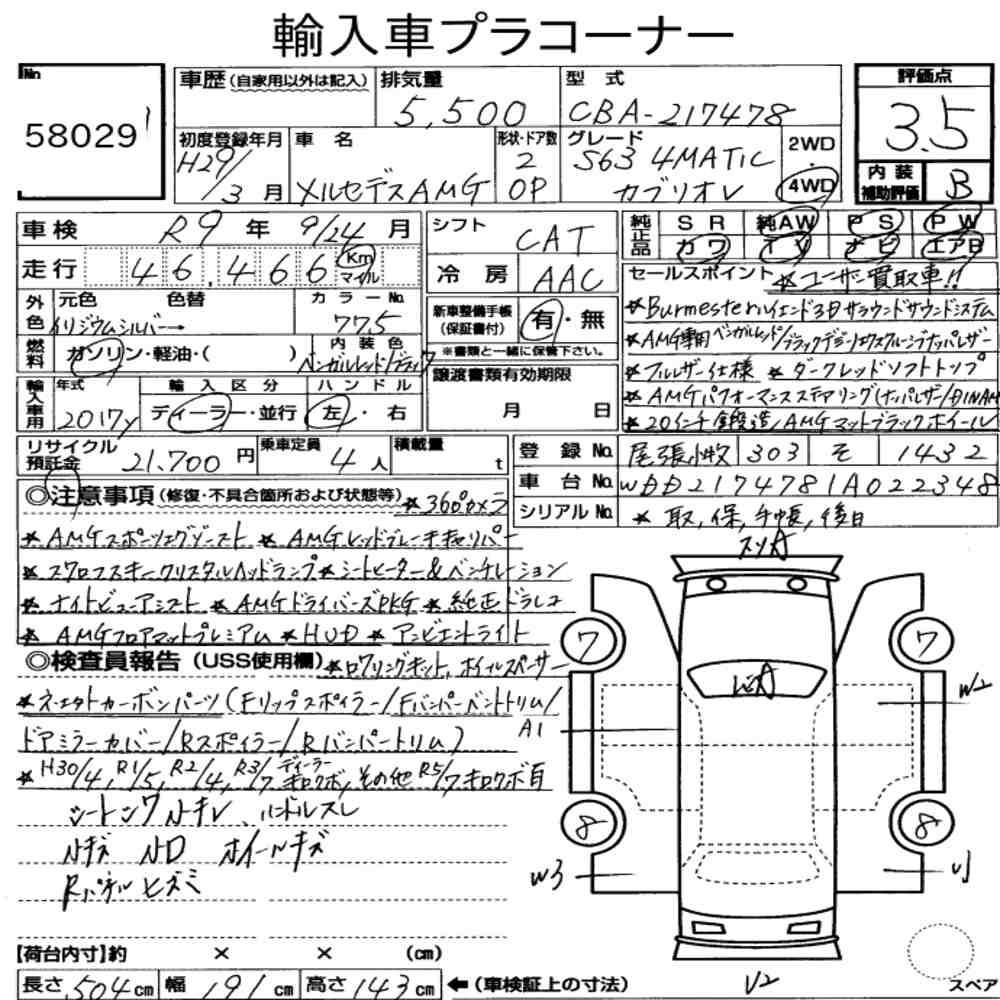 輸入車プラコーナー
No
58029 1
車歴 (自家用以外は記入)
排気量 5,500
型式 CBA-217478
評価点 3.5
初度登録年月 H29/3月
車名 メルセデスAMG
形状・ドア数 2 OP
グレード S63 4MATIC カブリオレ
2WD・4WD
内装補助評価 B
車検 R9年 9/24月
シフト CAT
純正品 SR 純AW PS PW
カワ ナビ エアB
走行 46,466 Km マイル
冷房 AAC
セールスポイント ★ユーザー買取車!!
外色 元色 色替 カラーNo.
イリジウムシルバー→ 775
新車整備手帳(保証書付) 有・無
※書類と一緒に保管下さい。
★Burmesterハイエンド3Dサラウンドサウンドシステム
★AMG専用ベンガルレッド/ブラックデジーノエクスクルーシブナッパレザー
★フルレザー仕様 ★ダークレッドソフトトップ
★AMGパフォーマンスステアリング(ナッパレザー/DINAMICA
★20インチ鍛造AMGマットブラックホイール
燃料 ガソリン・軽油・( )
内装色 ベンガルレッド/ブラック
譲渡書類有効期限
月 日
輸入車用 年式 2017y
輸入区分 ディーラー・並行
ハンドル 左・右
リサイクル預託金 21,700円
乗車定員 4人
積載量 t
登録No. 尾張小牧 303 そ 1432
車台No. WDD2174781A022348
シリアルNo. ★取,保,手帳,後日
◎注意事項 (修復・不具合箇所および状態等) ★360°カメラ
★AMGスポーツエグゾースト ★AMGレッドブレーキキャリパー
★スワロフスキークリスタルヘッドランプ ★シートヒーター&ベンチレーション
★ナイトビューアシスト ★AMGドライバーズPKG ★純正ドラレコ
★AMGフロアマットプレミアム ★HUD ★アンビエントライト
◎検査員報告 (USS使用欄) ★ロワリングキット,ホイールスペーサー
カーボンパーツ(Fリップスポイラー/Fバンパーベントトリム/
ドアミラーカバー/Rスポイラー/Rバンパートリム)
★H30/4, R1/5, R2/4, R3/7ディーラーキロクボ,その他R5/7キロクボ有
シートシワ小キレ、ハンドルスレ
小キズ 小凹 ホイールキズ
Rパネルヒズミ
スリA
7
7
A
A1
W2
8
8
W3
U1
U2
【荷台内寸】約 × × (cm)
長さ 504cm 幅 191cm 高さ 143cm ←(車検証上の寸法)
スペア